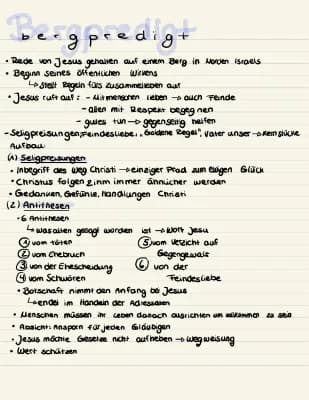 Bergpredigt
bergpredigt
• Rede von Jesus gehalten auf einem Berg in Norden Israels
• Beginn seines öffentlichen Wirkens
↳ stellt Regeln fürs zusammenleben auf
• Jesus ruft auf: - Mitmenschen lieben → auch Feinde
- allen mit Respekt begegnen
- gutes tun → gegenseitig helfen
- Seligpreisungen; Feindesliebe, "Goldene Regel", Vater unser → Kernstücke
Aufbau:
(1) Seligpreisungen
• Inbegriff des Weg Christi → einziger Pfad zum ewigen Glück
• Christus folgen ≙ ihm immer ähnlicher werden
• Gedanken, Gefühle, Handlungen Christi
(2) Antithesen
• 6 Antithesen
↳ was allen gesagt worden ist → Wort Jesu
① vom töten ⑤ vom Verzicht auf
② vom Ehebruch Gegengewalt
③ von der Ehescheidung ⑥ von der
④ vom Schwören Feindesliebe
• Botschaft nimmt den Anfang bei Jesus
↳ endet im Handeln der Adressaten
• Menschen müssen ihr Leben danach ausrichten um vollkommen zu sein
• Absicht: Ansporn für jeden Gläubigen
• Jesus möchte Gesetze nicht aufheben → Wegweisung
• Wert schätzen